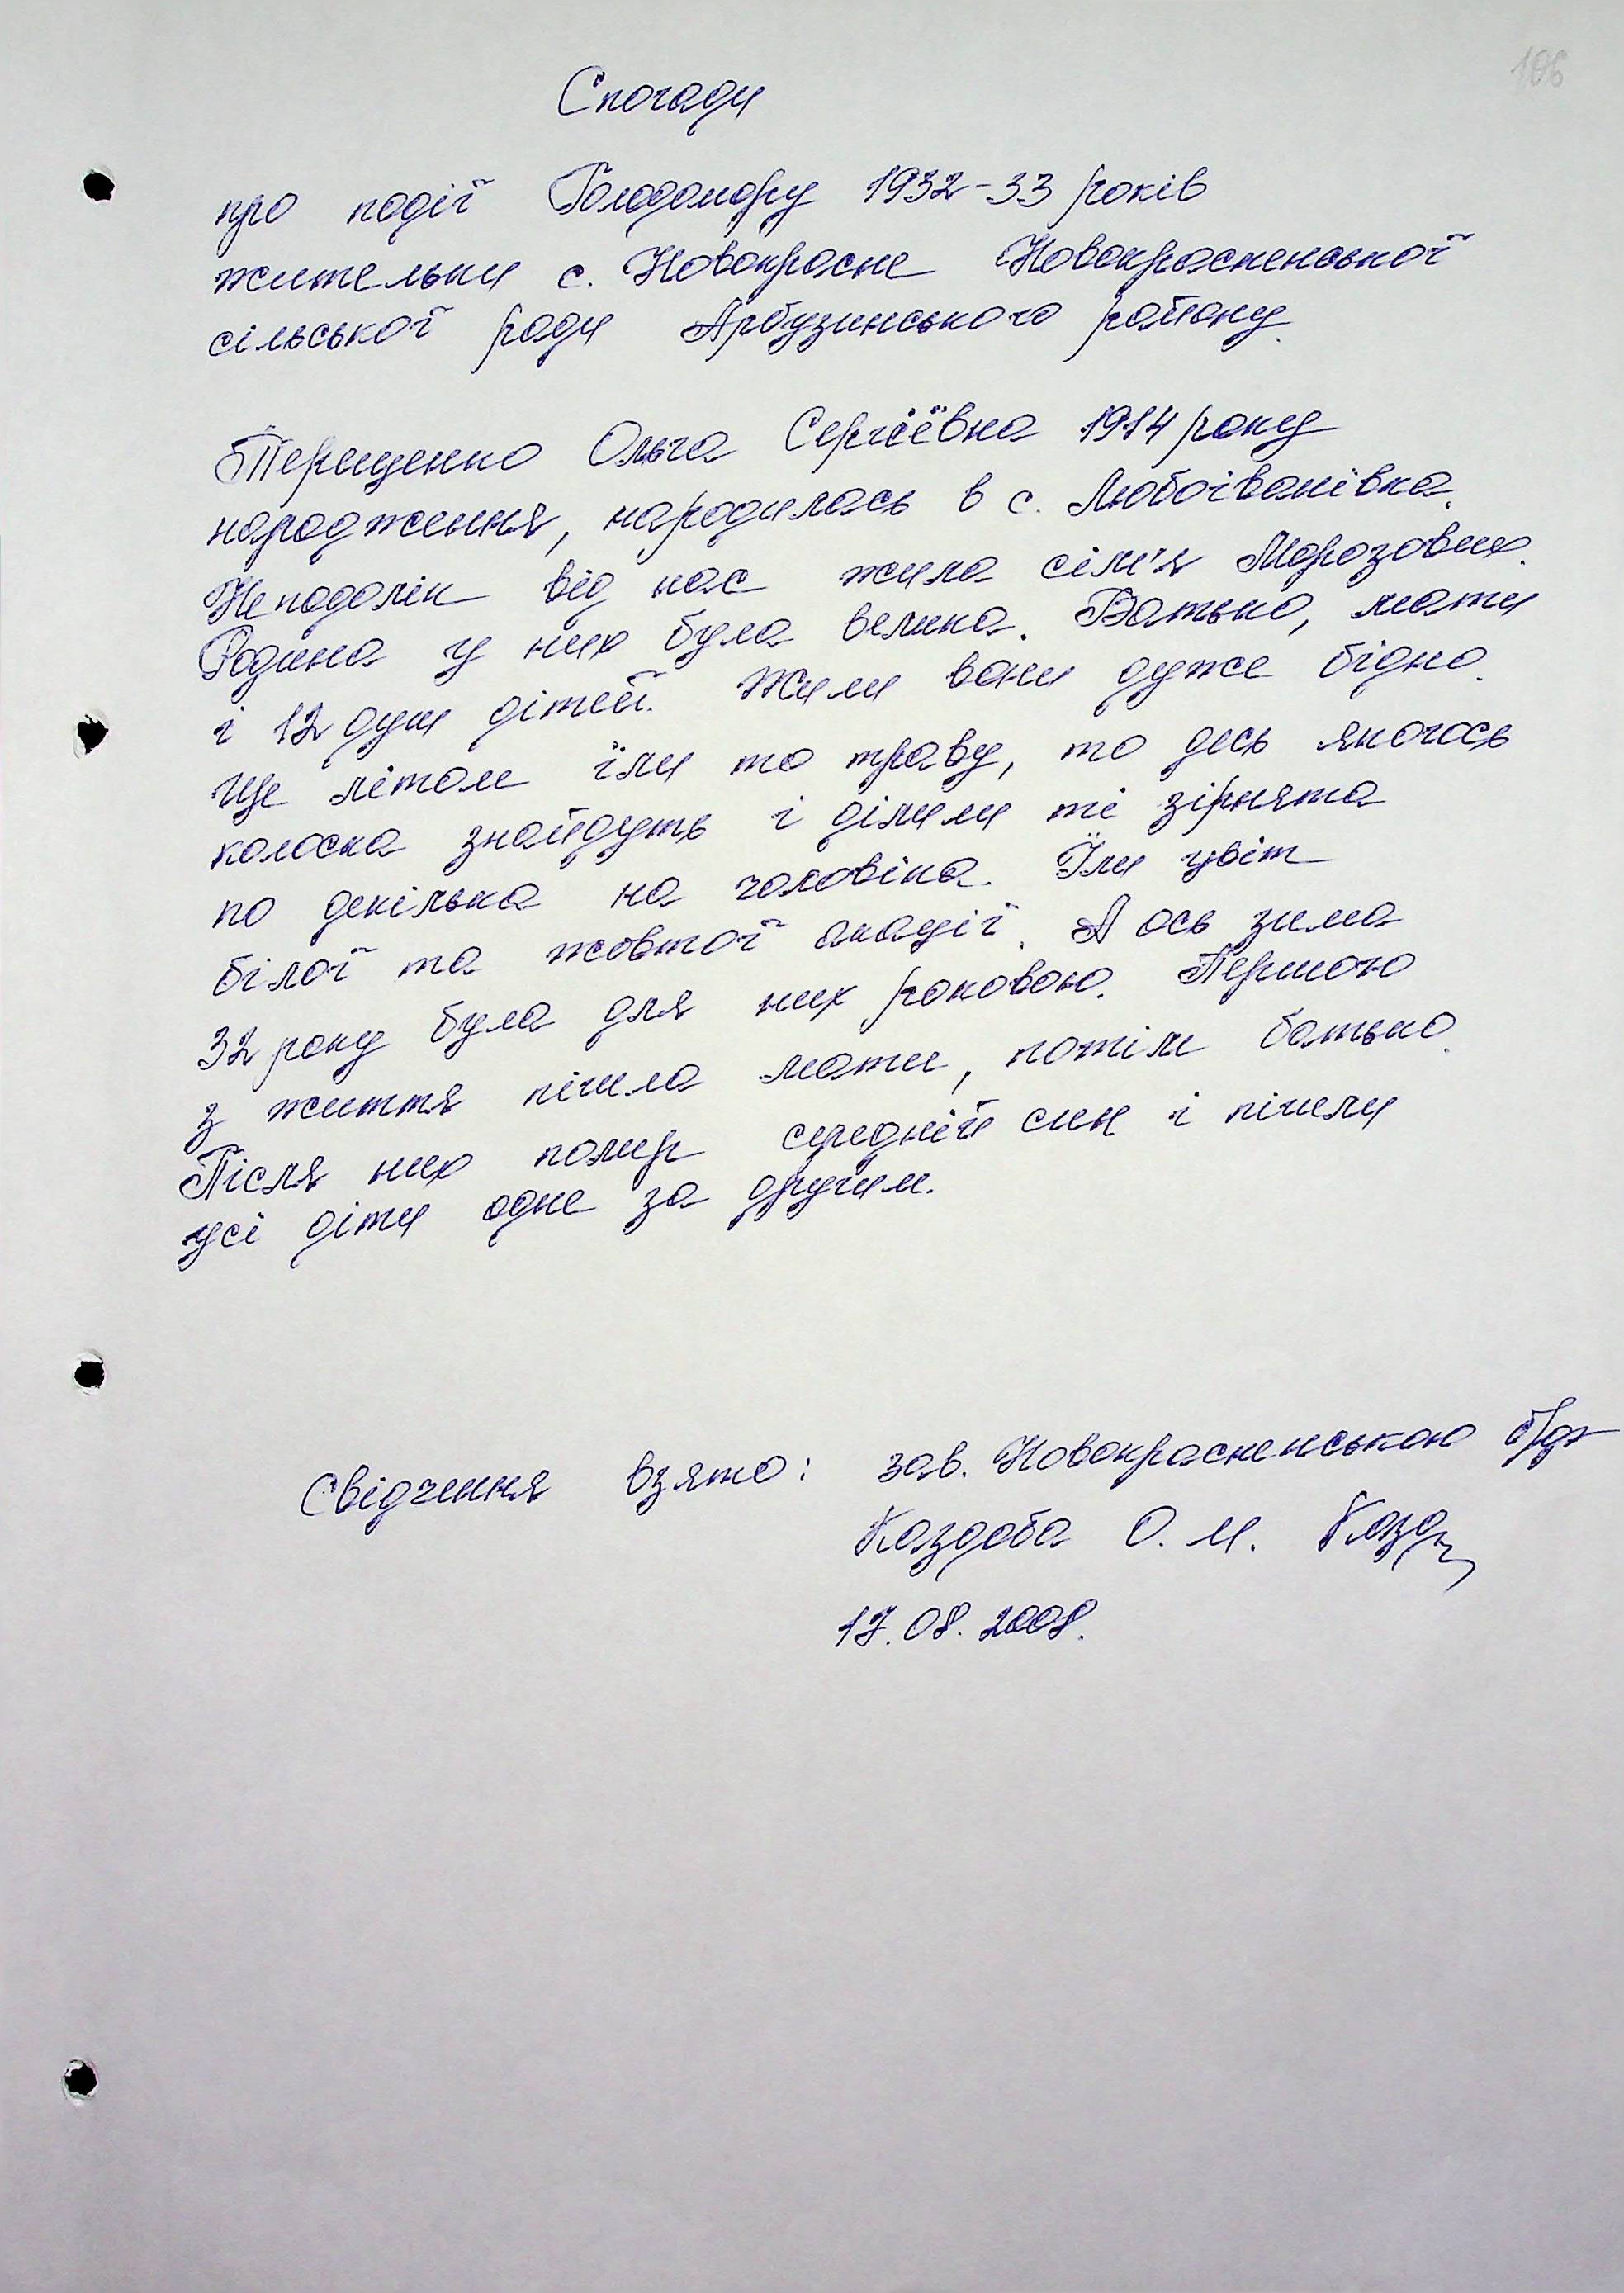 106
Спогади
про події Голодомору 1932-33 років
жительки с. Новокрасне Новокрасненської
сільської ради Арбузинського району.
Терещенко Ольга Сергіївна 1914 року
народження, народилась в с. Любоіванівка.
Неподалік від нас жила сім'я Морозових.
Родина у них була велика. Батько, мати
і 12 душ дітей. Жили вони дуже бідно.
Ще літом їли то траву, то десь якогось
колоска знайдуть і ділили ті зірнята
по декілька на чоловіка. Їли цвіт
білої та жовтої акації. А ось зима
32 року була для них роковою. Першою
з життя пішла мати, потім батько.
Після них помер середній син і пішли
усі діти одне за другим.
Свідчення взято: зав. Новокрасненською
Каздоба О. М.
17.08.2008.